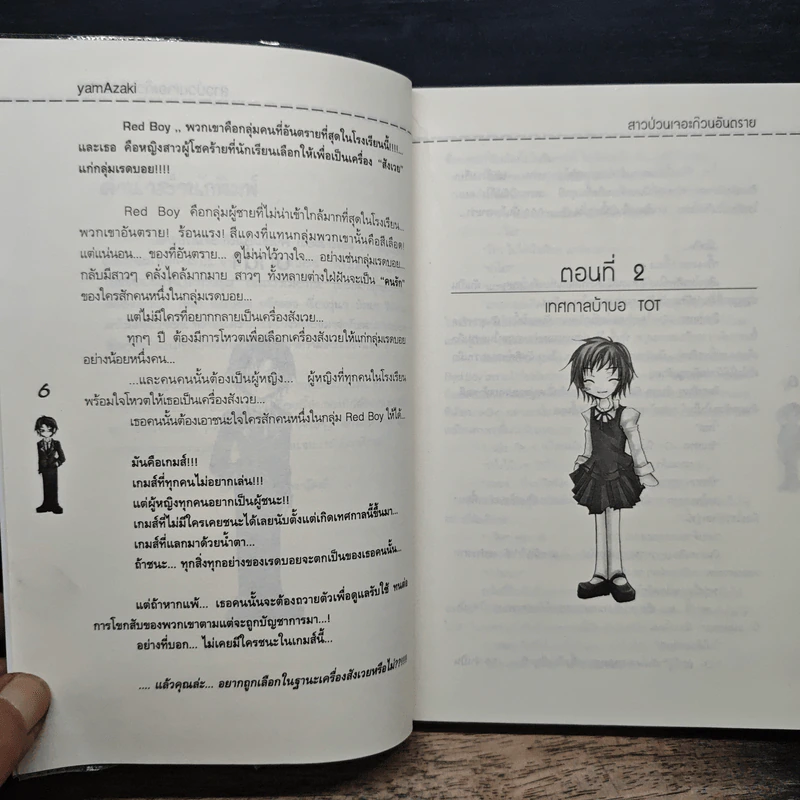 yamAzaki
Red Boy ,, พวกเขาคือกลุ่มคนที่อันตรายที่สุดในโรงเรียนนี้!!!!...
และเธอ คือหญิงสาวผู้โชคร้ายที่นักเรียนเลือกให้เพื่อเป็นเครื่อง "สังเวย"
แก่กลุ่มเรดบอย!!!!
Red Boy คือกลุ่มผู้ชายที่ไม่น่าเข้าใกล้มากที่สุดในโรงเรียน...
พวกเขาอันตราย! ร้อนแรง! สีแดงที่แทนกลุ่มพวกเขานั้นคือสีเลือด!
แต่แน่นอน... ของที่อันตราย... ดูไม่น่าไว้วางใจ... อย่างเช่นกลุ่มเรดบอย...
กลับมีสาวๆ คลั่งไคล้มากมาย สาวๆ ทั้งหลายต่างใฝ่ฝันจะเป็น "คนรัก"
ของใครสักคนหนึ่งในกลุ่มเรดบอย...
แต่ไม่มีใครที่อยากกลายเป็นเครื่องสังเวย...
ทุกๆ ปี ต้องมีการโหวตเพื่อเลือกเครื่องสังเวยให้แก่กลุ่มเรดบอย
อย่างน้อยหนึ่งคน...
...และคนคนนั้นต้องเป็นผู้หญิง... ผู้หญิงที่ทุกคนในโรงเรียน
พร้อมใจโหวตให้เธอเป็นเครื่องสังเวย...
เธอคนนั้นต้องเอาชนะใจใครสักคนหนึ่งในกลุ่ม Red Boy ให้ได้...
6
มันคือเกมส์!!!
เกมส์ที่ทุกคนไม่อยากเล่น!!!
แต่ผู้หญิงทุกคนอยากเป็นผู้ชนะ!!
เกมส์ที่ไม่มีใครเคยชนะได้เลยนับตั้งแต่เกิดเทศกาลนี้ขึ้นมา...
เกมส์ที่แลกมาด้วยน้ำตา...
ถ้าชนะ... ทุกสิ่งทุกอย่างของเรดบอยจะตกเป็นของเธอคนนั้น...
แต่ถ้าหากแพ้... เธอคนนั้นจะต้องถวายตัวเพื่อดูแลรับใช้ ทนต่อ
การโขกสับของพวกเขาตามแต่จะถูกบัญชาการมา...!
อย่างที่บอก... ไม่เคยมีใครชนะในเกมส์นี้...
.... แล้วคุณล่ะ... อยากถูกเลือกในฐานะเครื่องสังเวยหรือไม่??!!!!
สาวป่วนเจอะก๊วนอันตราย
ตอนที่ 2
เทศกาลบ้าบอ TOT